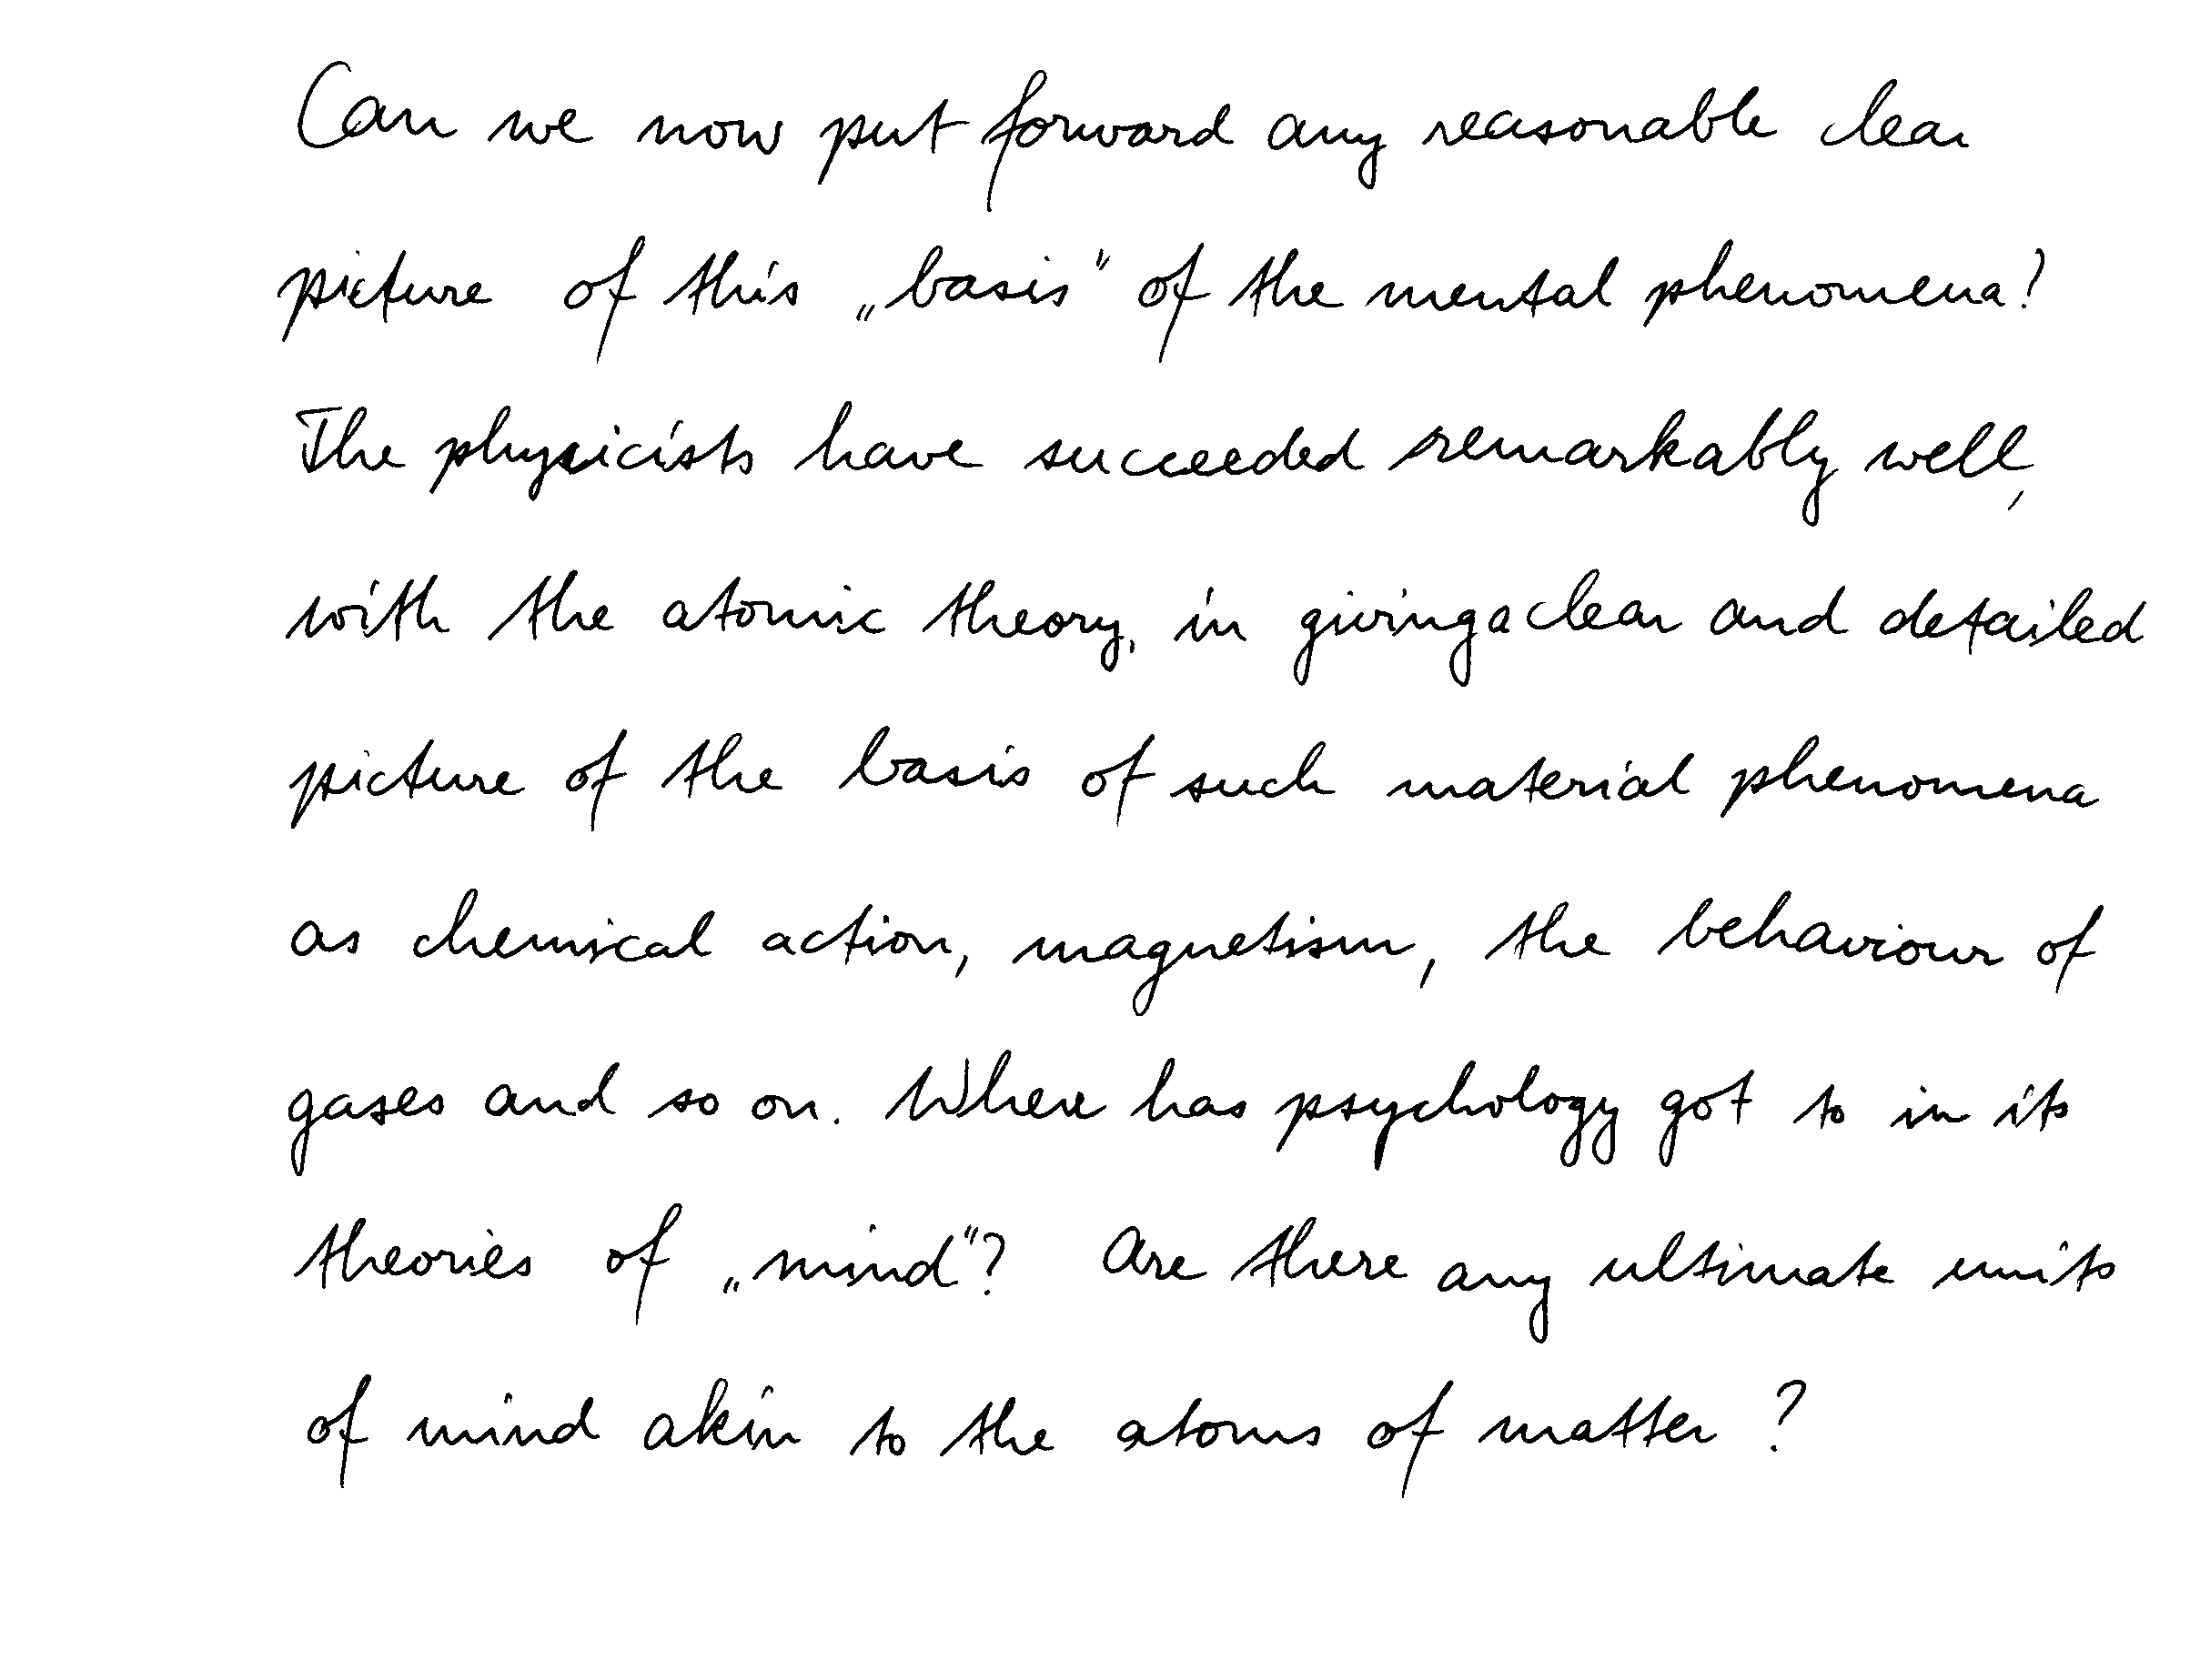 Can we now put forward any reasonable clear
picture of this „basis" of the mental phenomena?
The physicists have succeeded remarkably well,
with the atomic theory, in giving a clear and detailed
picture of the basis of such material phenomena
as chemical action, magnetism, the behaviour of
gases and so on. Where has psychology got to in its
theories of „mind"? Are there any ultimate units
of mind akin to the atoms of matter?